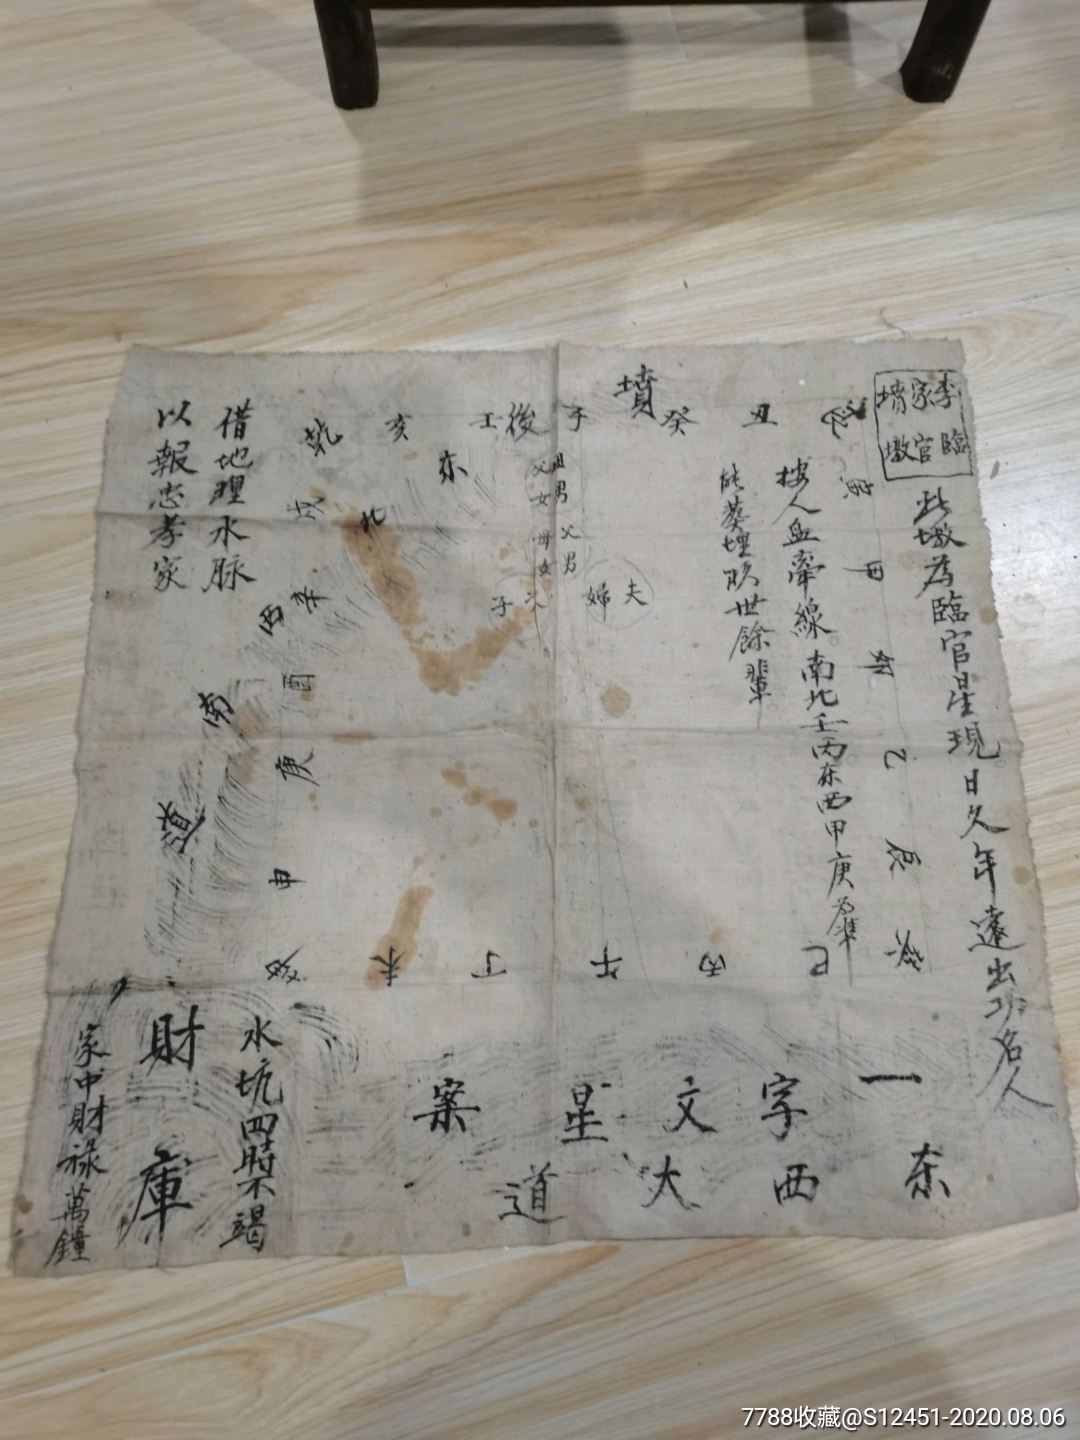 李臨
家官
墳墩
此墩為臨官星現日久年遠出功名人
按人血牽線南北壬丙东西甲庚
葬埋 世餘輩
墳
後
乾 亥 壬 子 癸 丑 艮
寅
甲
卯
乙
辰
巽
巳
丙
午
丁
未
坤
申
庚
酉
辛
戌
祖男
父女
父男
母女
夫婦
次子
东北
西南道
借地理水脉
以報忠孝家
一字文星案
东西大道
水坑四時不竭
財庫
家中財祿萬鐘
7788收藏@S12451-2020.08.06